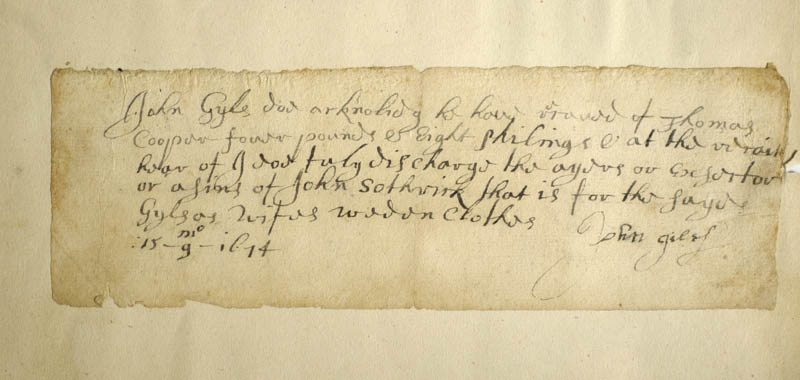 I John Gyls doe acknolidg to have receued of Thomas
Cooper fower pounds & eight shilings & at the receait
hear of I doe fuly discharge the ayers or exsector
or asins of John Sothrick that is for the saye
Gylses wifes weden Clothes John giles
:15 - mo 9 - 1674